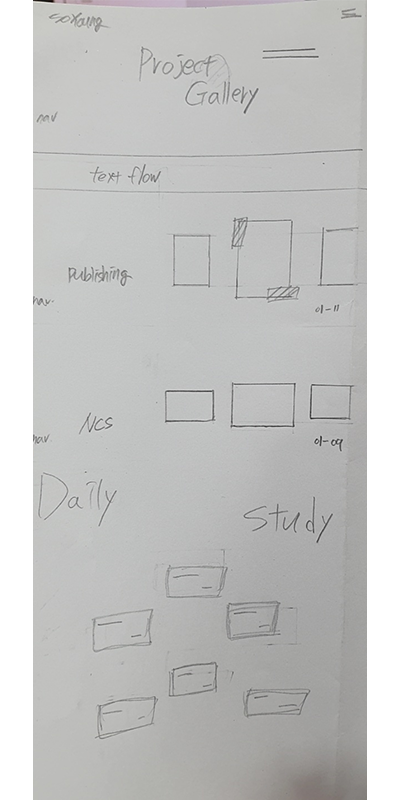 soyoung
Project
Gallery
nav
text flow
Publishing
nav.
01-11
NCS
nav.
01-09
Daily
Study